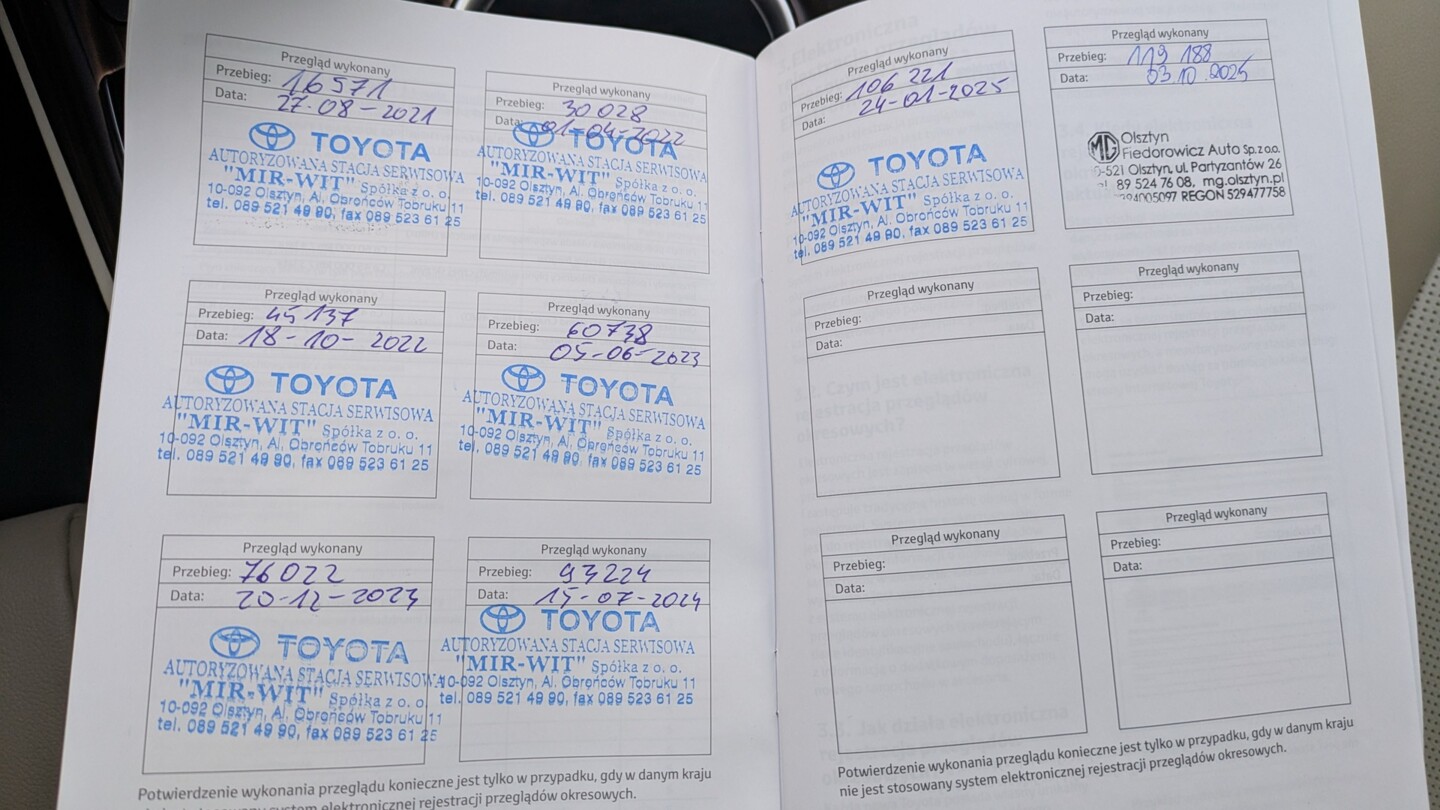 Przegląd wykonany
Przebieg: 16571
Data: 27-08-2021
TOYOTA
AUTORYZOWANA STACJA SERWISOWA
"MIR-WIT" Spółka z o. o.
10-092 Olsztyn, Al. Obrońców Tobruku 11
tel. 089 521 49 90, fax 089 523 61 25
Przegląd wykonany
Przebieg: 30 028
Data: 01-04-2022
TOYOTA
AUTORYZOWANA STACJA SERWISOWA
"MIR-WIT" Spółka z o. o.
10-092 Olsztyn, Al. Obrońców Tobruku 11
tel. 089 521 49 90, fax 089 523 61 25
Przegląd wykonany
Przebieg: 45 137
Data: 18-10-2022
TOYOTA
AUTORYZOWANA STACJA SERWISOWA
"MIR-WIT" Spółka z o. o.
10-092 Olsztyn, Al. Obrońców Tobruku 11
tel. 089 521 49 90, fax 089 523 61 25
Przegląd wykonany
Przebieg: 60738
Data: 05-06-2023
TOYOTA
AUTORYZOWANA STACJA SERWISOWA
"MIR-WIT" Spółka z o. o.
10-092 Olsztyn, Al. Obrońców Tobruku 11
tel. 089 521 49 90, fax 089 523 61 25
Przegląd wykonany
Przebieg: 76022
Data: 20-12-2023
TOYOTA
AUTORYZOWANA STACJA SERWISOWA
"MIR-WIT" Spółka z o. o.
10-092 Olsztyn, Al. Obrońców Tobruku 11
tel. 089 521 49 90, fax 089 523 61 25
Przegląd wykonany
Przebieg: 93224
Data: 15-07-2024
TOYOTA
AUTORYZOWANA STACJA SERWISOWA
"MIR-WIT" Spółka z o. o.
10-092 Olsztyn, Al. Obrońców Tobruku 11
tel. 089 521 49 90, fax 089 523 61 25
Potwierdzenie wykonania przeglądu konieczne jest tylko w przypadku, gdy w danym kraju
system elektronicznej rejestracji przeglądów okresowych.
Przegląd wykonany
Przebieg: 106 221
Data: 24-01-2025
TOYOTA
AUTORYZOWANA STACJA SERWISOWA
"MIR-WIT" Spółka z o. o.
10-092 Olsztyn, Al. Obrońców Tobruku 11
tel. 089 521 49 90, fax 089 523 61 25
Przegląd wykonany
Przebieg: 119 188
Data: 03.10.2025
MG Olsztyn
Fiedorowicz Auto Sp. z o.o.
0-521 Olsztyn, ul. Partyzantów 26
89 524 76 08, mg.olsztyn.pl
REGON 529477758
Przegląd wykonany
Przebieg:
Data:
Przegląd wykonany
Przebieg:
Data:
Przegląd wykonany
Przebieg:
Data:
Przegląd wykonany
Przebieg:
Data:
Potwierdzenie wykonania przeglądu konieczne jest tylko w przypadku, gdy w danym kraju
nie jest stosowany system elektronicznej rejestracji przeglądów okresowych.